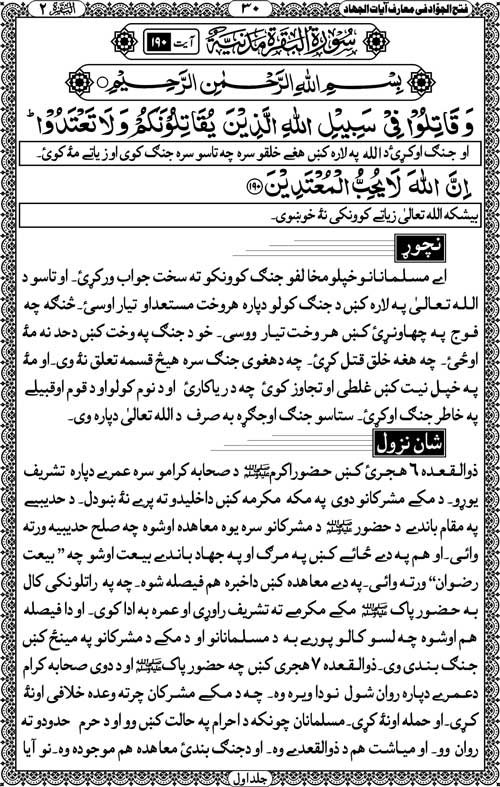 فتح الجوّاد فی معارف آیات الجهاد ۳۰ البقرة ۲
سُوْرَةُ الْبَقَرَةِ مَدَنِيَّةٌ آیت ۱۹۰
بِسْمِ اللهِ الرَّحْمٰنِ الرَّحِيْمِ
وَقَاتِلُوْا فِیْ سَبِيْلِ اللهِ الَّذِيْنَ يُقَاتِلُوْنَكُمْ وَلَا تَعْتَدُوْا ؕ
او جنګ اوکړئ د الله په لاره کښ هغے خلقو سره چه تاسو سره جنګ کوی او زیاتے مۀ کوئ۔
اِنَّ اللهَ لَا يُحِبُّ الْمُعْتَدِيْنَ ۝۱۹۰
بیشکه الله تعالیٰ زیاتے کوونکی نۀ خوښوی۔
نچوړ
اے مسلمانانو خپلو مخالفو جنګ کوونکو ته سخت جواب ورکړئ۔ او تاسو د
الله تعالیٰ په لاره کښ د جنګ کولو دپاره هروخت مستعد او تیار اوسئ۔ څنګه چه
فوج په چهاونړئ کښ هر وخت تیار ووسی۔ خو د جنګ په وخت کښ د حد نه مۀ
اوځئ۔ چه هغه خلق قتل کړئ۔ چه دهغوی جنګ سره هیڅ قسمه تعلق نۀ وی۔ او مۀ
په خپل نیت کښ غلطی او تجاوز کوئ چه د ریاکارئ او د نوم کولو او د قوم او قبیلے
په خاطر جنګ اوکړئ۔ ستاسو جنګ اوجګړه به صرف د الله تعالیٰ دپاره وی۔
شان نزول
ذوالقعده ۶ هجرئ کښ حضور اکرم ﷺ د صحابه کرامو سره عمرے دپاره تشریف
یوړو۔ د مکے مشرکانو دوی په مکه مکرمه کښ داخلیدو ته پرے نۀ ښودل۔ د حدیبیے
په مقام باندے د حضور ﷺ د مشرکانو سره یوه معاهده اوشوه چه صلح حدیبیه ورته
وائی۔ او هم په دے ځائے کښ په مرګ او په جهاد باندے بیعت اوشو چه ” بیعت
رضوان“ ورته وائی۔ په دے معاهده کښ داخبره هم فیصله شوه۔ چه په راتلونکی کال
به حضور پاک ﷺ مکے مکرمے ته تشریف راوړی او عمره به ادا کوی۔ او دا فیصله
هم اوشوه چه لسو کالو پورے به د مسلمانانو او د مکے د مشرکانو په مینځ کښ
جنګ بندی وی۔ ذوالقعده ۷ هجری کښ چه حضور پاک ﷺ او د دوی صحابه کرام
د عمرے دپاره روان شول نو دا ویره وه۔ چه د مکے مشرکان چرته وعده خلافی اونۀ
کړی۔ او حمله اونۀ کړی۔ مسلمانان چونکه د احرام په حالت کښ وو او د حرم حدودو ته
روان وو۔ او میاشت هم د ذوالقعدے وه۔ او د جنګ بندئ معاهده هم موجوده وه۔ نو آیا
جلد اول